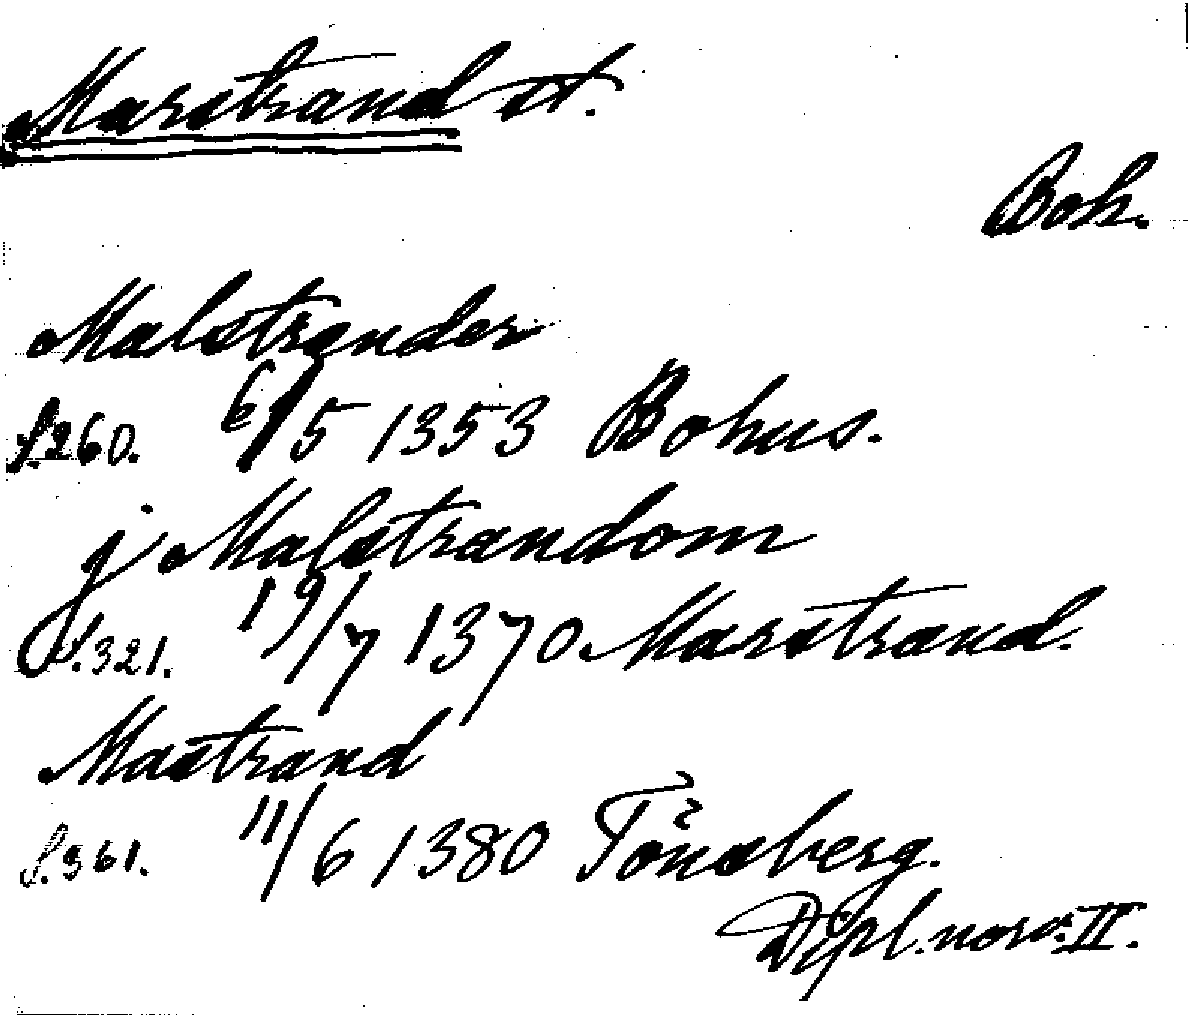 Marstrand st.
Boh.
Malstrander
S.260. 6/5 1353 Bohus.
j Malstrandom
S.321. 19/7 1370 Marstrand.
Mastrand
S.361. 11/6 1380 Tönsberg.
Dipl. norv. II.